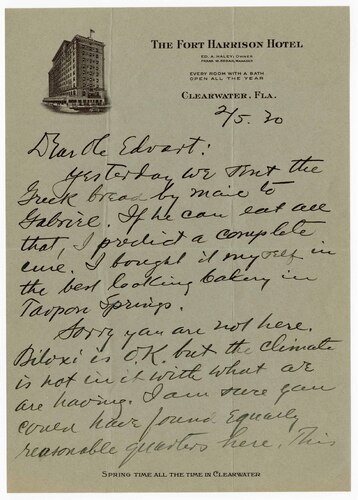 THE FORT HARRISON HOTEL
ED. A. HALEY, OWNER
FRANK W. REGAN, MANAGER
EVERY ROOM WITH A BATH
OPEN ALL THE YEAR
CLEARWATER, FLA.
2/5. 30
Dear Ole Edvart:
Yesterday we sent the
Greek bread by mail to
Gabriel. If he can eat all
that, I predict a complete
cure. I bought it myself in
the best looking bakery in
Tarpon Springs.
Sorry you are not here.
Biloxi is O.K. but the climate
is not in it with what we
are having. I am sure you
could have found equally
reasonable quarters here. This
SPRING TIME ALL THE TIME IN CLEARWATER